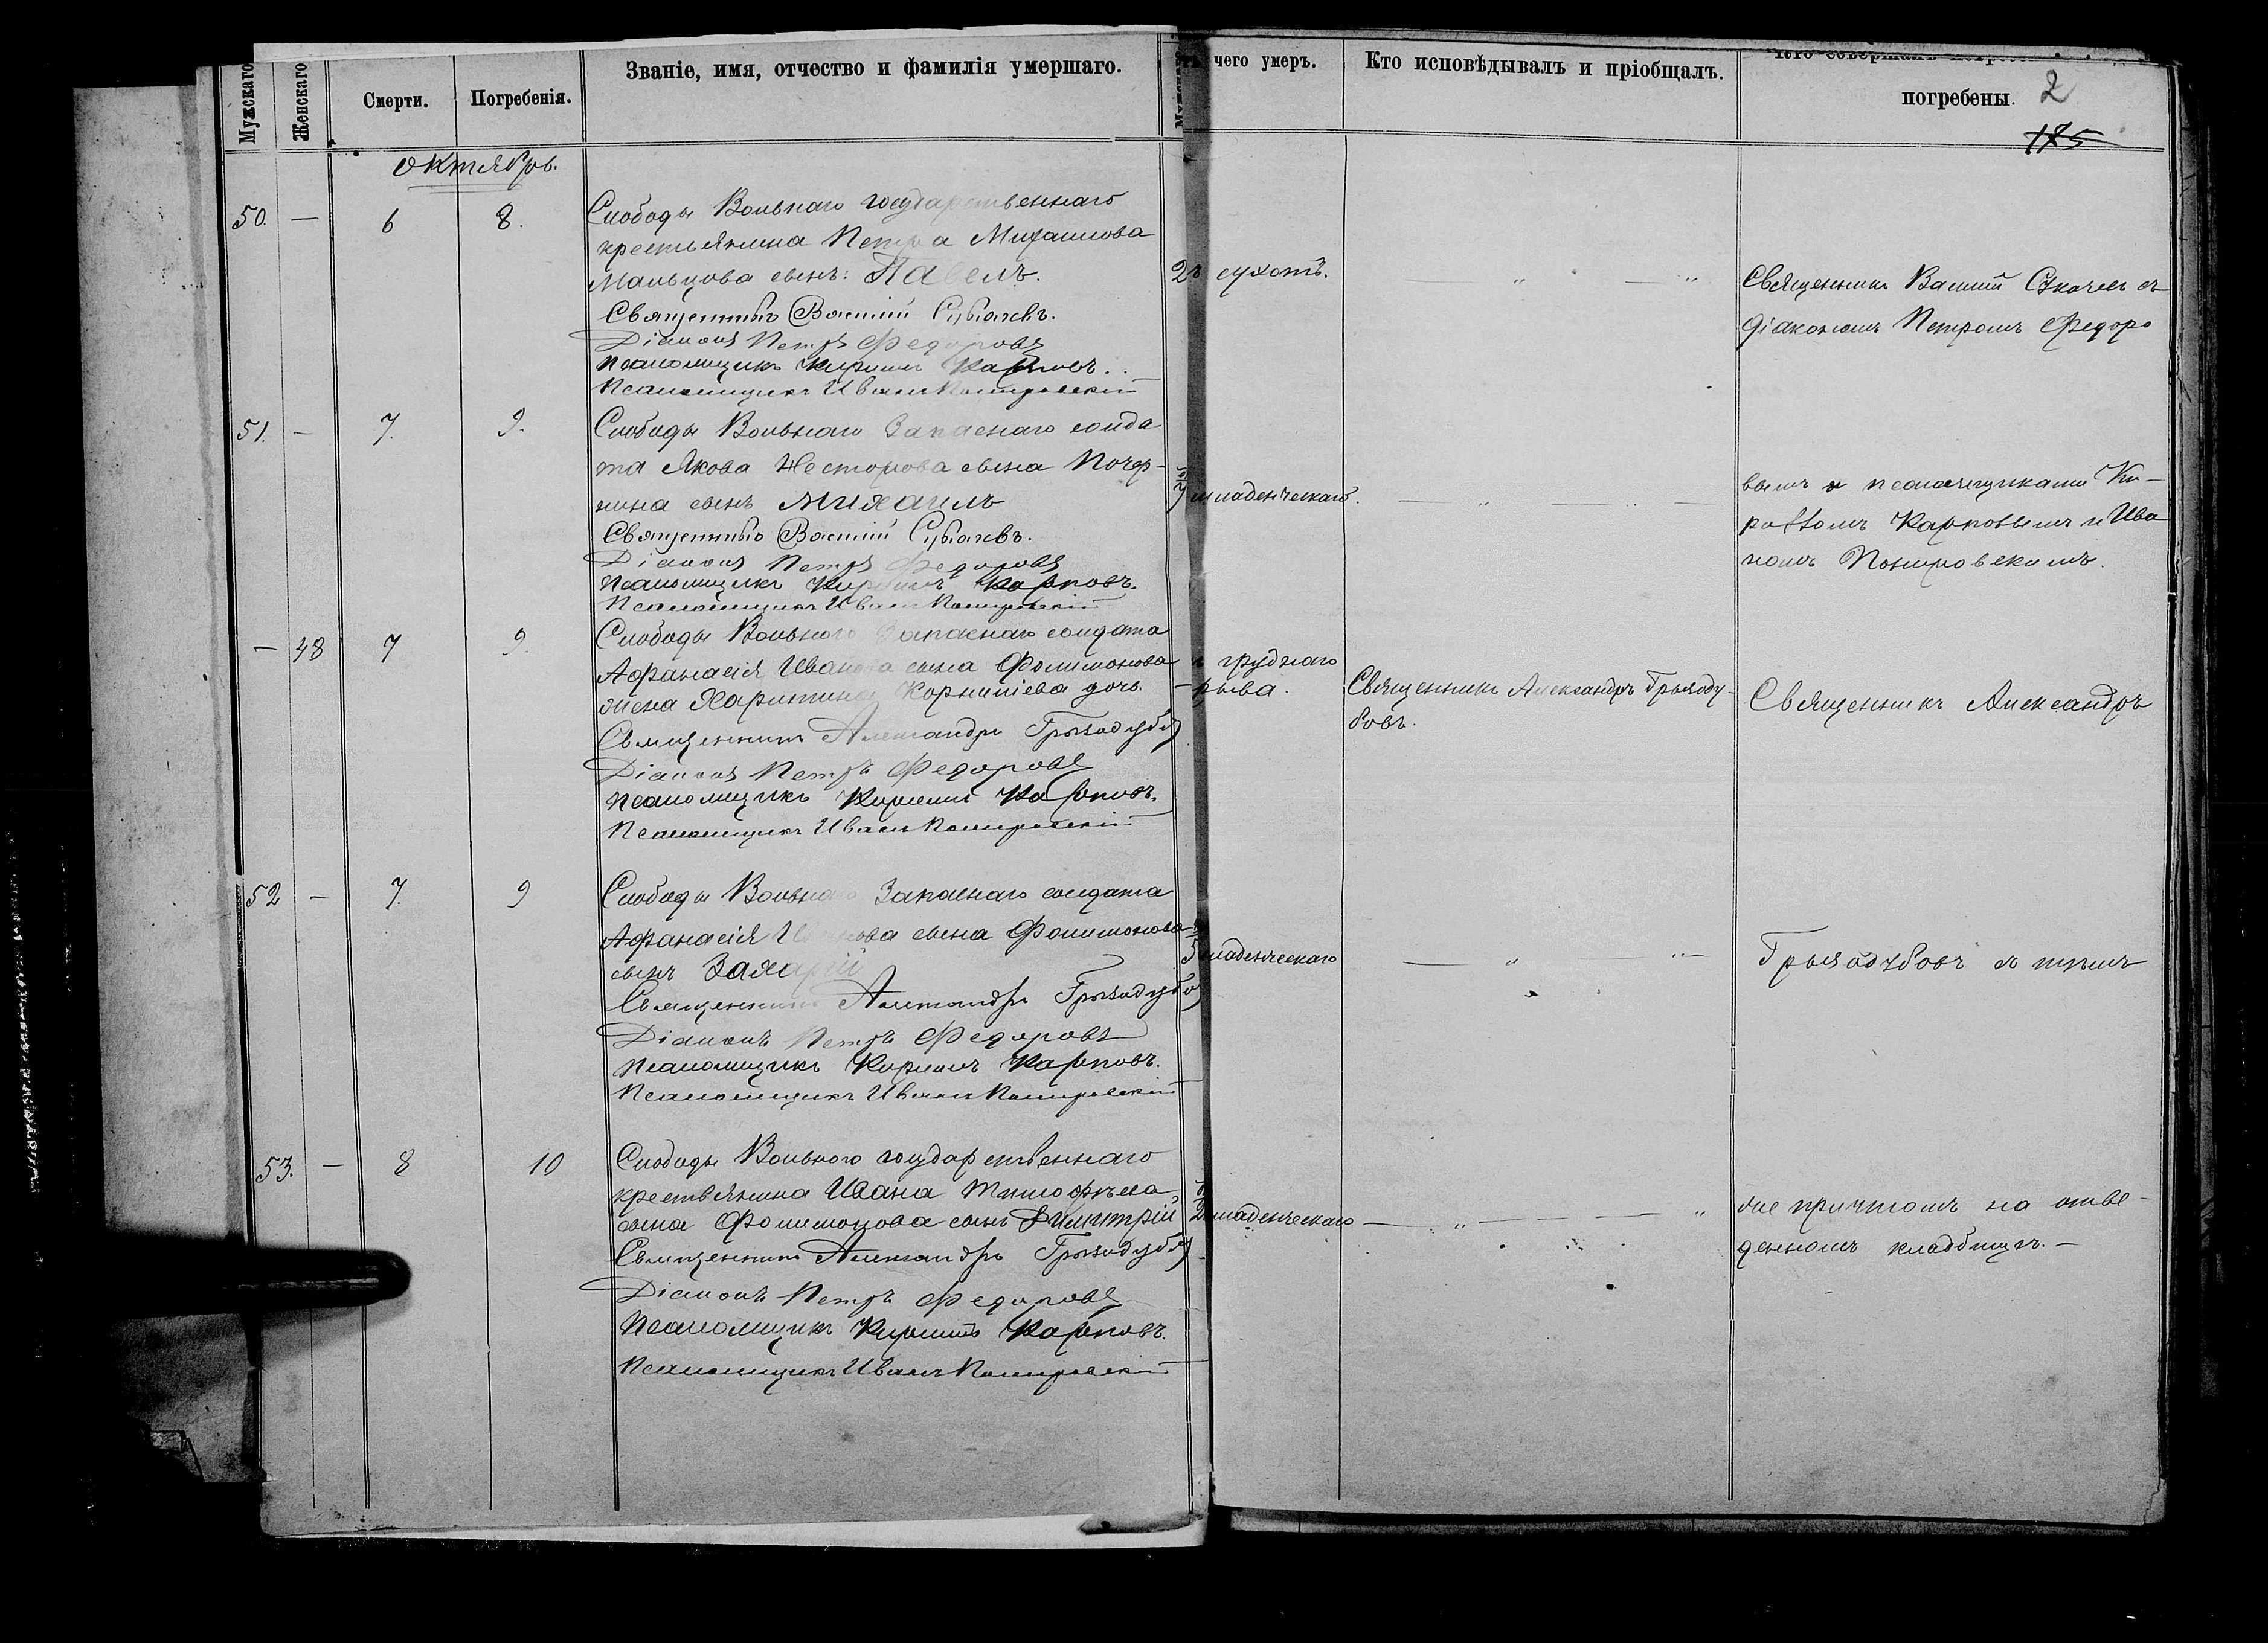 Мужскаго
Женскаго
Смерти.
Погребенія.
Званіе, имя, отчество и фамилія умершаго.
чего умеръ.
Кто исповѣдывалъ и пріобщалъ.
погребены. 2
175
Октябрь.
50. — 6 8.
Слободы Вольнаго государственнаго
крестьянина Петра Михаилова
Мальцова сынъ: Павелъ.
Священникъ Василій
Діаконъ Петръ Федоровъ
Псаломщикъ Кириллъ Карповъ.
Псаломщикъ Иванъ
сухотъ.
Священникъ Василій съ
діакономъ Петромъ Федоро
51. — 7. 9.
Слободы Вольнаго Запаснаго солда
та Якова Несторова сына Почер-
нина сынъ Михаилъ
Священникъ Василій
Діаконъ Петръ Федоровъ
Псаломщикъ Кириллъ Карповъ.
Псаломщикъ Иванъ
младенческаго.
вымъ и псаломщиками Ки-
рилломъ Карповымъ и Ива
номъ
— 48 7 9.
Слободы Вольнаго Запаснаго солдата
Афанасія Иванова сына Филимонова
жена Харитина Корнилiева дочь.
Священникъ Александръ Грызодубовъ
Діаконъ Петръ Федоровъ
Псаломщикъ Кириллъ Карповъ.
Псаломщикъ Иванъ
груднаго
Священникъ Александръ Грызоду-
бовъ.
Священникъ Александръ
52 — 7. 9
Слободы Вольнаго Запаснаго солдата
Афанасія Иванова сына Филимонова
сынъ Захарій
Священникъ Александръ Грызодубовъ
Діаконъ Петръ Федоровъ
Псаломщикъ Кириллъ Карповъ.
Псаломщикъ Иванъ
младенческаго
Грызодубовъ съ тѣмъ
53. — 8 10
Слободы Вольнаго государственнаго
крестьянина Ивана Тимофѣева
сына Филимонова сынъ Димитрій
Священникъ Александръ Грызодубовъ
Діаконъ Петръ Федоровъ
Псаломщикъ Кириллъ Карповъ.
Псаломщикъ Иванъ
младенческаго
же причтомъ на отве-
денномъ кладбищѣ. —